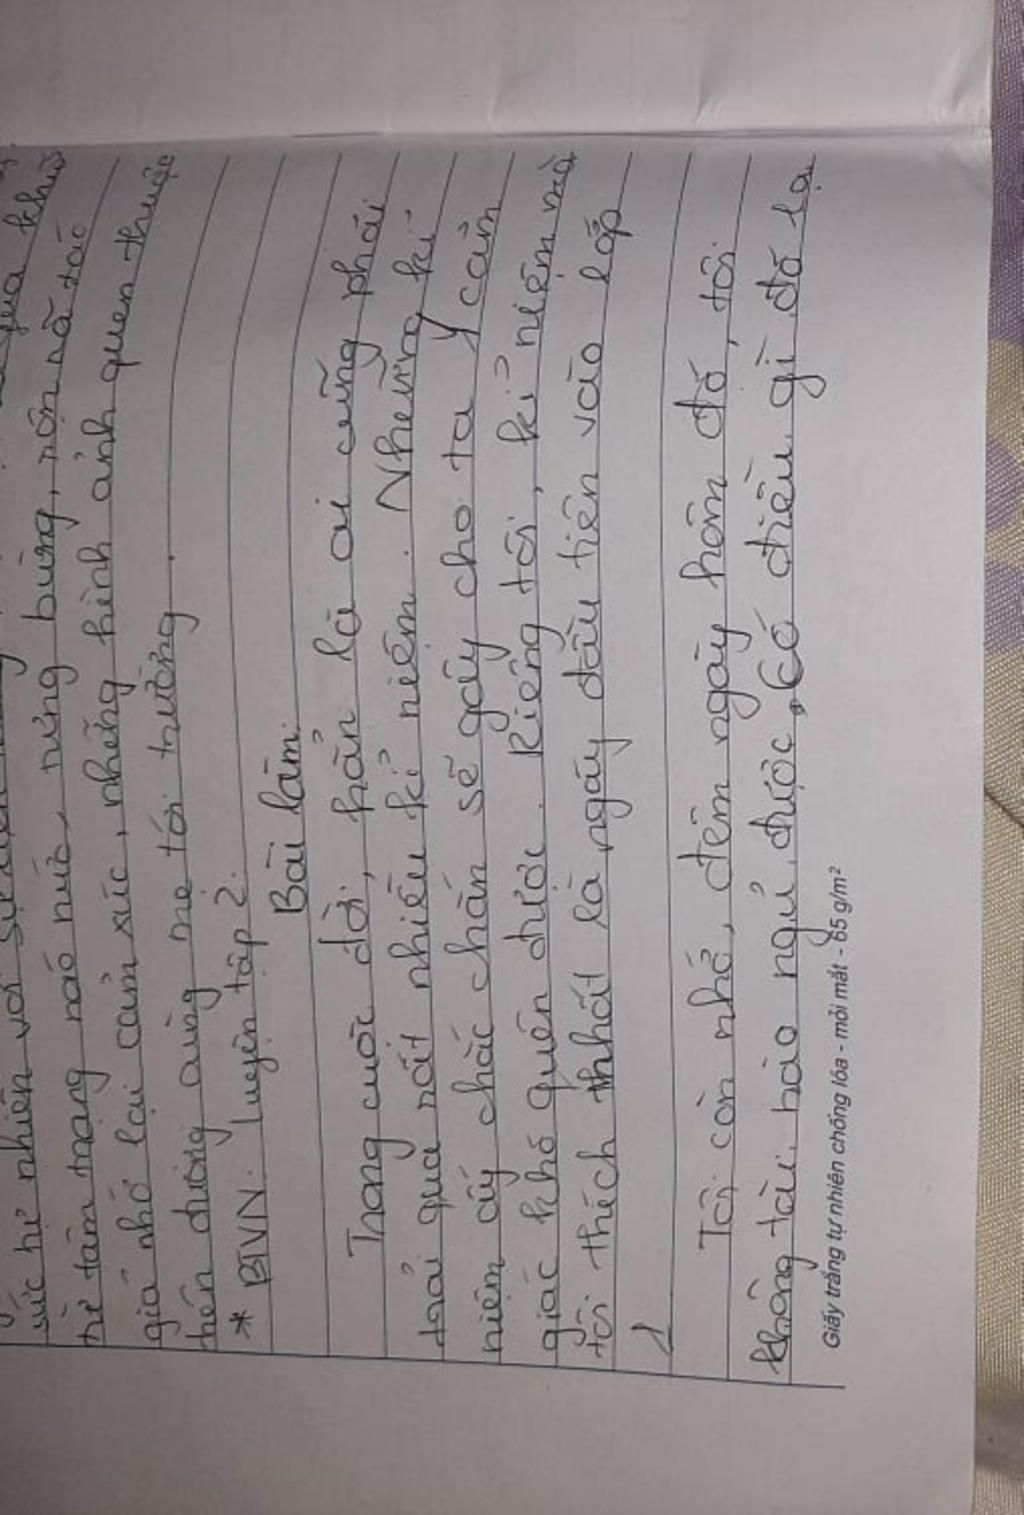 quá khứ
ức hự nhiên với
từ tâm trạng náo nức, nưng bừng, nộn nã tác
giả nhớ lại cảm xúc, những hình ảnh quen thuộc
trên đường cùng mẹ tới trường.
* BTVN. Luyện tập 2.
Bài làm.
Trong cuộc đời, hẳn là ai cũng phải
trải qua rất nhiều kỉ niệm. Những kỉ
niệm ấy chắc chắn sẽ gây cho ta cảm
giác khó quên được. Riêng tôi, kỉ niệm mà
tôi thích nhất là ngày đầu tiên vào lớp
1
Tôi còn nhớ, đêm ngày hôm đó, tôi
không tài nào ngủ được, có điều gì đó lạ
Giấy trắng tự nhiên chống lóa - mỏi mắt - 65 g/m²